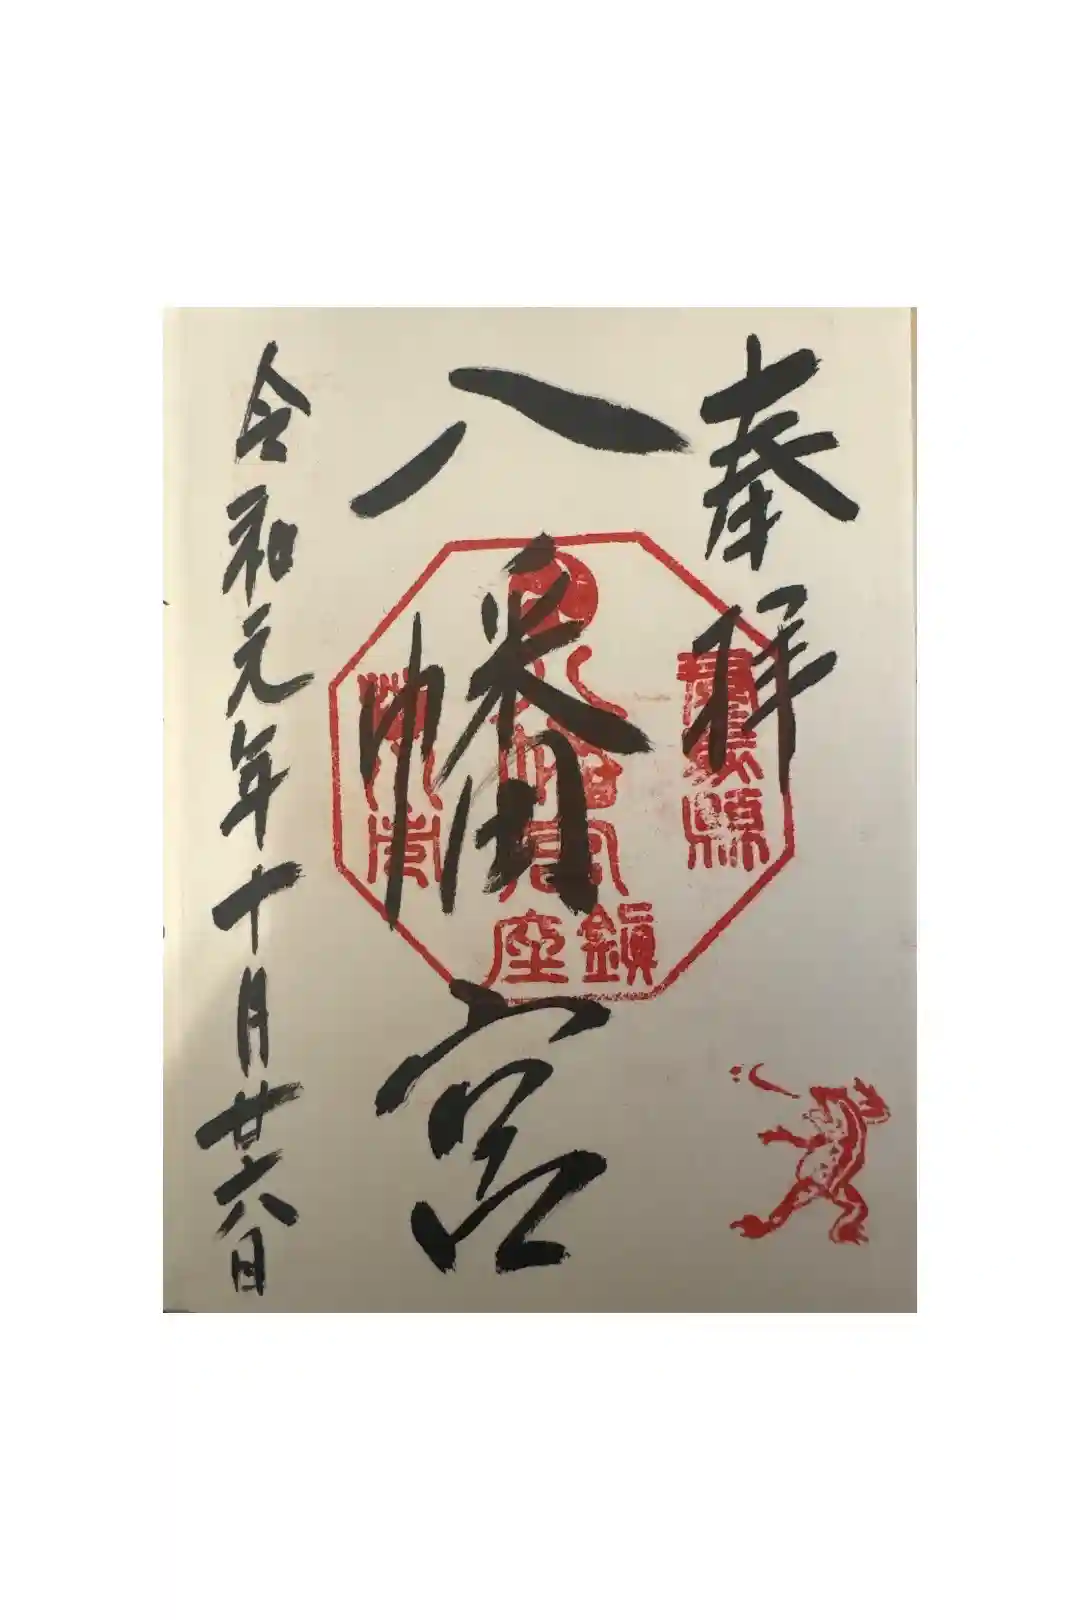 奉拝
八幡宮
令和元年十月廿六日
鎮座